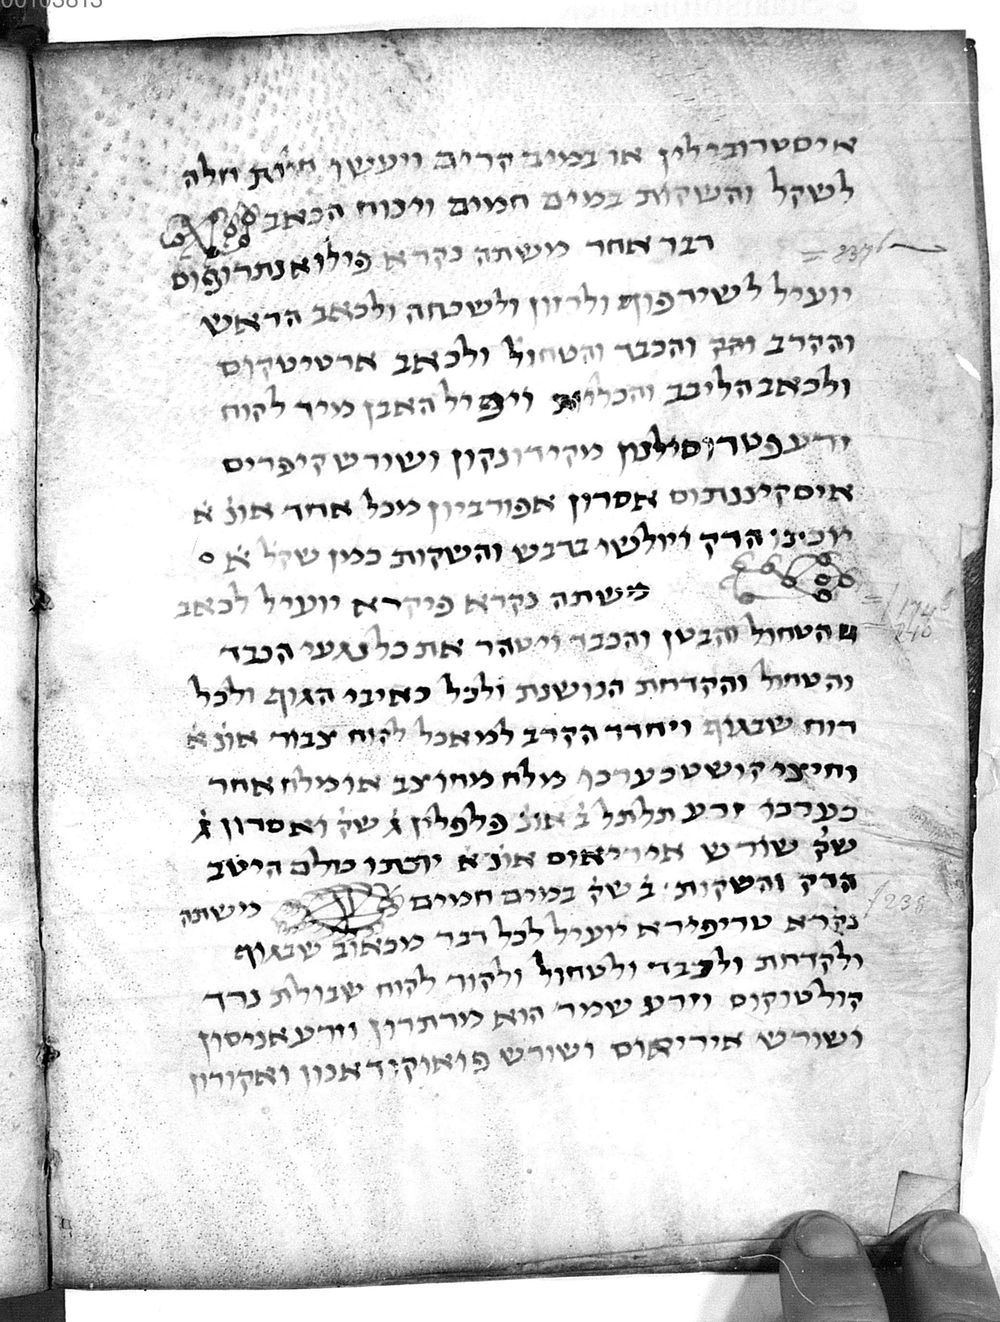 00103813
איסטרובילין או במיב קרים ויעשו חיות חלה
לשקל והשקות במים חמים וינוח הכאב
דבר אחר משתה נקרא פילואנתרופוס
יועיל לשירפוק ולרזון ולשכחה ולכאב הראש
והקרב והכבד והטחול ולכאב ארטיטיקוס
ולכאב הליבב והכליות ויפיל האבן מיד לקוח
זרע פטרוסילנון מקידונקון ושורש קיפריס
איסקיננתוס אסרון אפורביון מכל אחד אונ א
הדק וילושו בדבש והשקות כמין שקל א
משתה נקרא פיקרא יועיל לכאב
הטחול והבטן והכבד ויטהר את כל נגעי הכבד
והטחול והקדחת הנושנת ולכל כאיבי הגוף ולכל
רוח שבגוף ויחדד הקרב למאכל לקוח צבור אונ א
וחיצי קושט כערכו מלח מחוצב או מלח אחר
כערכו זרע תלתל ב אונ פלפלין ג שק ואסרון ג
שק שורש איריאוס אונ א יוכתו כולם היטב
הדק והשקות ב שק במים חמים משתה
נקרא טריפירא יועיל לכל דבר מכאוב שבגוף
ולקדחת ולכבד ולטחול ולקור לקוח שבולת נרד
קולטוקוס וזרע שמר הוא מרתרון וזרע אניסון
ושורש איריאוס ושורש פואוקידאנון ואקורון
238